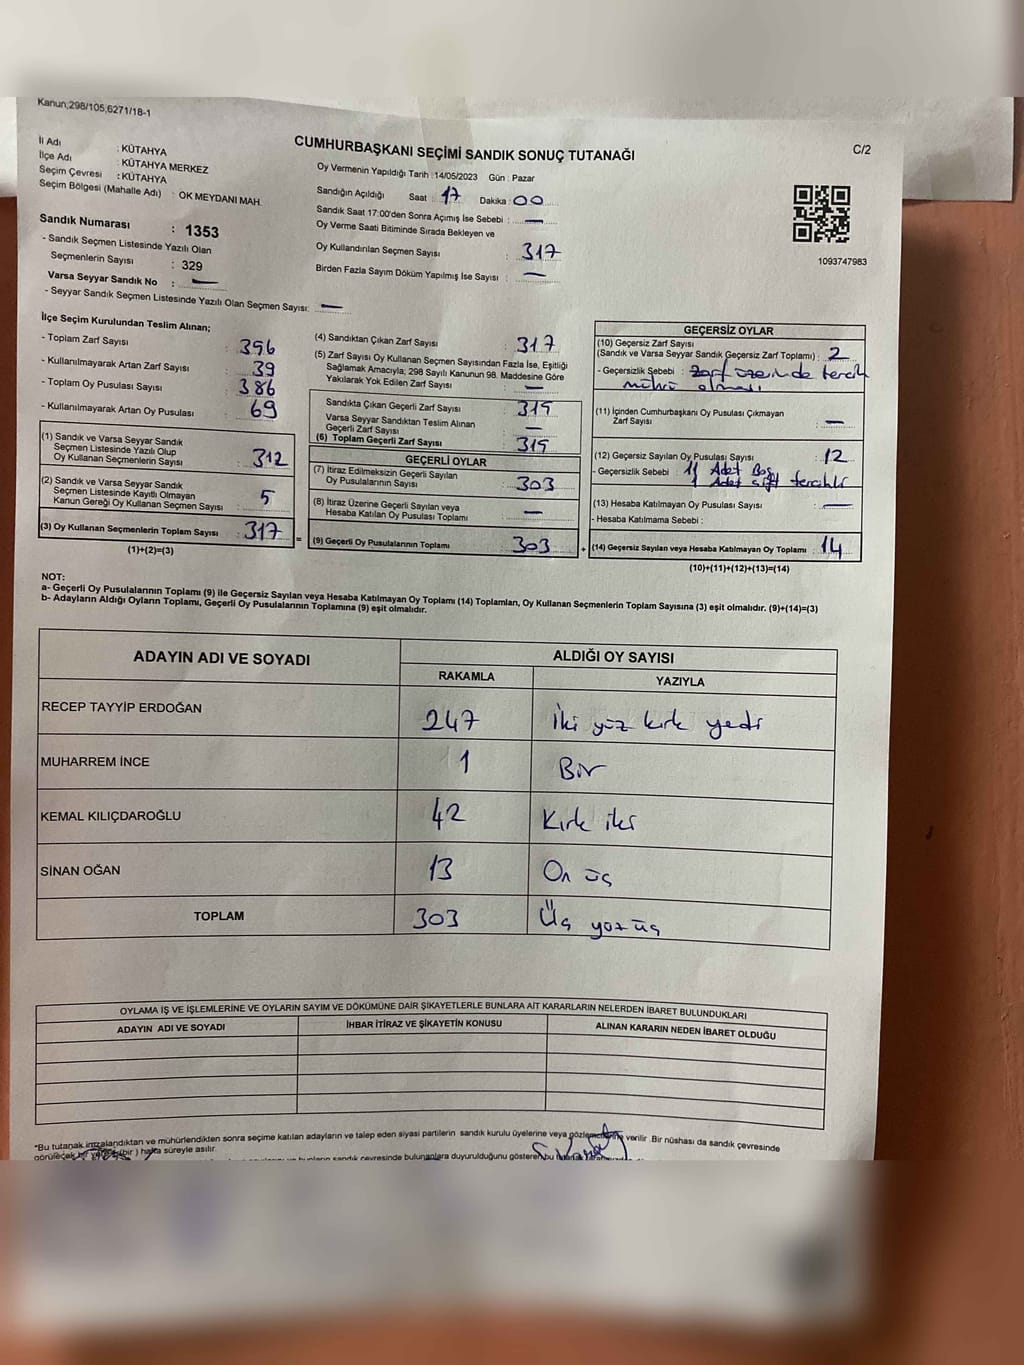 Kanun;298/105,6271/18-1
C/2
İl Adı : KÜTAHYA
İlçe Adı : KÜTAHYA MERKEZ
Seçim Çevresi : KÜTAHYA
Seçim Bölgesi (Mahalle Adı) : OK MEYDANI MAH.
Sandık Numarası : 1353
- Sandık Seçmen Listesinde Yazılı Olan
Seçmenlerin Sayısı : 329
Varsa Seyyar Sandık No : —
- Seyyar Sandık Seçmen Listesinde Yazılı Olan Seçmen Sayısı: —
CUMHURBAŞKANI SEÇİMİ SANDIK SONUÇ TUTANAĞI
Oy Vermenin Yapıldığı Tarih :14/05/2023 Gün : Pazar
Sandığın Açıldığı Saat : 17 Dakika : 00
Sandık Saat 17:00'den Sonra Açımış İse Sebebi : —
Oy Verme Saati Bitiminde Sırada Bekleyen ve
Oy Kullandırılan Seçmen Sayısı : 317
Birden Fazla Sayım Döküm Yapılmış İse Sayısı : —
1093747983
İlçe Seçim Kurulundan Teslim Alınan;
- Toplam Zarf Sayısı : 396
- Kullanılmayarak Artan Zarf Sayısı : 39
- Toplam Oy Pusulası Sayısı : 386
- Kullanılmayarak Artan Oy Pusulası : 69
(1) Sandık ve Varsa Seyyar Sandık
Seçmen Listesinde Yazılı Olup
Oy Kullanan Seçmenlerin Sayısı : 312
(2) Sandık ve Varsa Seyyar Sandık
Seçmen Listesinde Kayıtlı Olmayan
Kanun Gereği Oy Kullanan Seçmen Sayısı : 5
(3) Oy Kullanan Seçmenlerin Toplam Sayısı : 317
(1)+(2)=(3)
=
(4) Sandıktan Çıkan Zarf Sayısı : 317
(5) Zarf Sayısı Oy Kullanan Seçmen Sayısından Fazla İse, Eşitliği
Sağlamak Amacıyla; 298 Sayılı Kanunun 98. Maddesine Göre
Yakılarak Yok Edilen Zarf Sayısı : —
Sandıkta Çıkan Geçerli Zarf Sayısı : 315
Varsa Seyyar Sandıktan Teslim Alınan
Geçerli Zarf Sayısı : —
(6) Toplam Geçerli Zarf Sayısı : 315
GEÇERLİ OYLAR
(7) İtiraz Edilmeksizin Geçerli Sayılan
Oy Pusulalarının Sayısı : 303
(8) İtiraz Üzerine Geçerli Sayılan veya
Hesaba Katılan Oy Pusulası Toplamı : —
(9) Geçerli Oy Pusulalarının Toplamı : 303
+
GEÇERSİZ OYLAR
(10) Geçersiz Zarf Sayısı
(Sandık ve Varsa Seyyar Sandık Geçersiz Zarf Toplamı) : 2
- Geçersizlik Sebebi : zarf üzerinde tercih
mührü olması
(11) İçinden Cumhurbaşkanı Oy Pusulası Çıkmayan
Zarf Sayısı : —
(12) Geçersiz Sayılan Oy Pusulası Sayısı : 12
- Geçersizlik Sebebi : 11 Adet Boş
1 Adet çift tercihli
(13) Hesaba Katılmayan Oy Pusulası Sayısı : —
- Hesaba Katılmama Sebebi :
(14) Geçersiz Sayılan veya Hesaba Katılmayan Oy Toplamı : 14
(10)+(11)+(12)+(13)=(14)
NOT:
a- Geçerli Oy Pusulalarının Toplamı (9) ile Geçersiz Sayılan veya Hesaba Katılmayan Oy Toplamı (14) Toplamları, Oy Kullanan Seçmenlerin Toplam Sayısına (3) eşit olmalıdır. (9)+(14)=(3)
b- Adayların Aldığı Oyların Toplamı, Geçerli Oy Pusulalarının Toplamına (9) eşit olmalıdır.
ADAYIN ADI VE SOYADI ALDIĞI OY SAYISI
RAKAMLA YAZIYLA
RECEP TAYYİP ERDOĞAN 247 İki yüz kırk yedi
MUHARREM İNCE 1 Bir
KEMAL KILIÇDAROĞLU 42 Kırk iki
SİNAN OĞAN 13 On üç
TOPLAM 303 Üç yüz üç
OYLAMA İŞ VE İŞLEMLERİNE VE OYLARIN SAYIM VE DÖKÜMÜNE DAİR ŞİKAYETLERLE BUNLARA AİT KARARLARIN NELERDEN İBARET BULUNDUKLARI
ADAYIN ADI VE SOYADI İHBAR İTİRAZ VE ŞİKAYETİN KONUSU ALINAN KARARIN NEDEN İBARET OLDUĞU
"Bu tutanak imzalandıktan ve mühürlendikten sonra seçime katılan adayların ve talep eden siyasi partilerin sandık kurulu üyelerine veya gözlemcilerine verilir .Bir nüshası da sandık çevresinde
görülecek bir yerde (bir ) hafta süreyle asılır.
sandık çevresinde bulunanlara duyurulduğunu gösteren bu